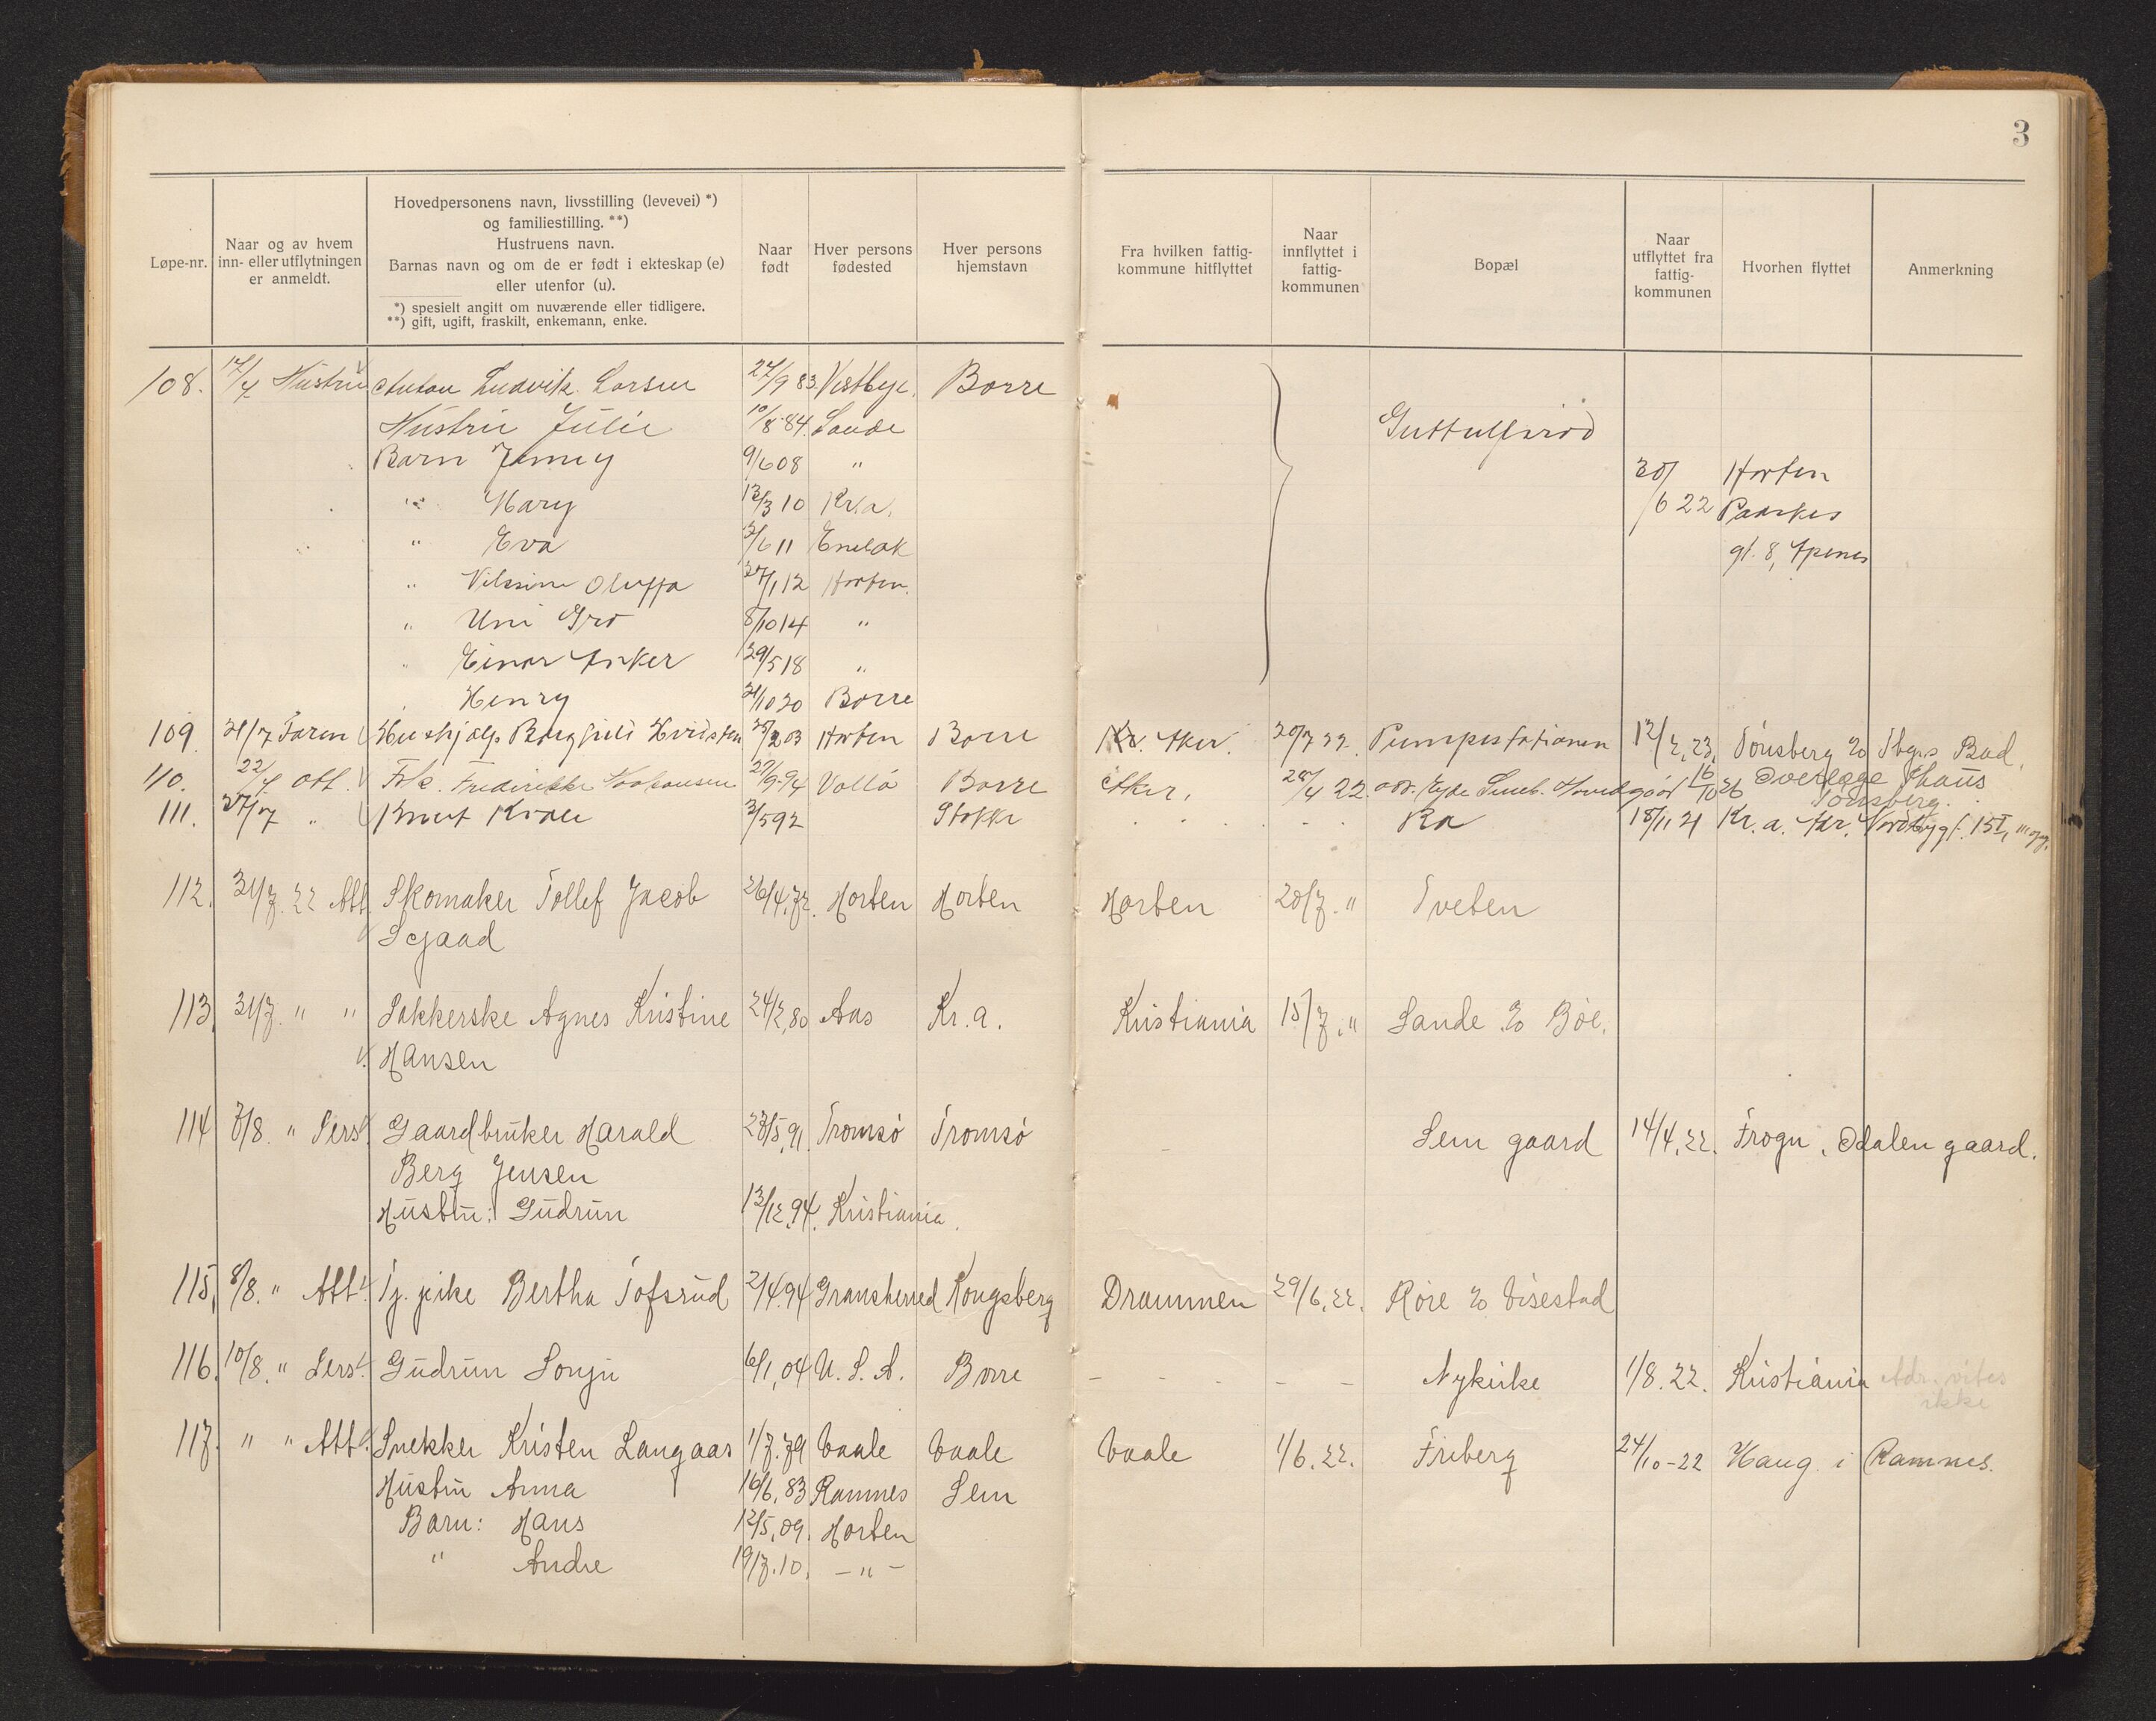 3
Løpe-nr.
Naar og av hvem
inn- eller utflytningen
er anmeldt.
Hovedpersonens navn, livsstilling (levevei) *)
og familiestilling. **)
Hustruens navn.
Barnas navn og om de er født i ekteskap (e)
eller utenfor (u).
*) spesielt angitt om nuværende eller tidligere.
**) gift, ugift, fraskilt, enkemann, enke.
Naar
født
Hver persons
fødested
Hver persons
hjemstavn
Fra hvilken fattig-
kommune hitflyttet
Naar
innflyttet i
fattig-
kommunen
Bopæl
Naar
utflyttet fra
fattig-
kommunen
Hvorhen flyttet
Anmerkning
108. Hustru Anton Ludvik Larsen 27/9 83. Vestbye. Borre
Hustru Julie 10/8 84. Sande
Barn Jenny 9/6 08 "
" Mary 10 Kr.a.
" Eva 11 Enebak
" Oluffa 27/1 12 Horten.
" Uni Gro 8/10 14 "
" Einar Anker 29/5 18 "
Henry 20 Borre
30/6 22 Horten
109. Farm Hushjælp 03 Horten Borre Aker. 20/7 22. Pumpestationen 12/2.23. Tønsberg
110. 22/4 Att. Frk. Fredrikke 94 Vallø Borre Aker. 22. 16/10 26 Overlæge
Tønsberg.
111. 27/7 " Knut 92 Stokke Ra 18/11 21 Kr.a.
112. 31/7. 22 Att. Skomaker Tollef Jacob 26/4.72. Horten Horten Horten 20/7. " Tveten
113. 31/7. " " Agnes Kristine 24/2.80 Aas Kr.a. Kristiania 15/7. " Sande Bøe.
Hansen
114 3/8. " Gaardbruker Harald 23/5.91. Tromsø Tromsø Sem gaard 14/4.22. Frogn. Odalen gaard.
Berg Jensen
Hustru: Gudrun 13/12.94. Kristiania.
115. 8/8. " Att. Tj. pike Bertha Tofsrud 2/4.94 Gransherred Kongsberg Drammen 29/6.22. Røre Visestad
116. 10/8. " Gudrun Sonju 6/1.04 U.S.A. Borre - - - - - Nykirke 1/8.22. Kristiania Adr. vites
ikke
117. " " Att. Snekker Kristen Langaas 1/7.79 Vaale Vaale Vaale 1/6.22. Friberg 24/10-22 Haug i Ramnes.
Hustru Anna 16/6.83 Ramnes Sem
Barn: Hans 12/5.09. Horten
" Andre 19/7.10. -"-